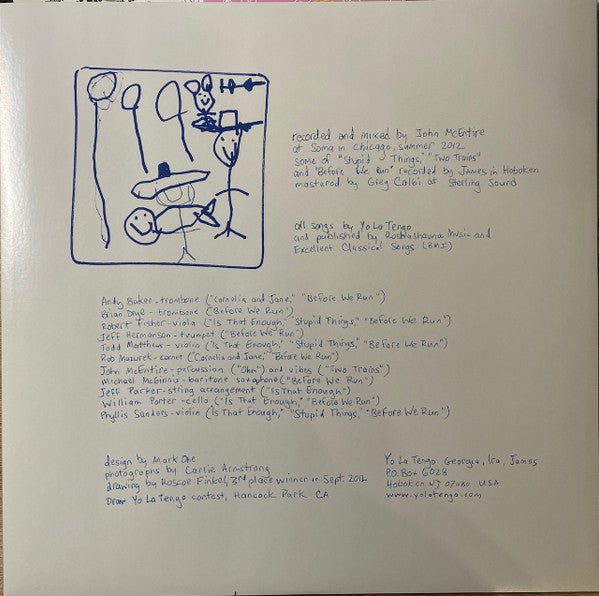 recorded and mixed by John McEntire
at Soma in Chicago, summer 2012
some of "Stupid Things," "Two Trains"
and "Before We Run" recorded by James in Hoboken
mastered by Greg Calbi at Sterling Sound
all songs by Yo La Tengo
and published by Roshashauna Music and
Excellent Classical Songs (BMI)
Andy Baker - trombone ("Cornelia and Jane," "Before We Run")
Brian Drye - trombone ("Before We Run")
Robert Fisher - viola ("Is That Enough," "Stupid Things," "Before We Run")
Jeff Hermanson - trumpet ("Before We Run")
Todd Matthews - violin ("Is That Enough," "Stupid Things," "Before We Run")
Rob Mazurek - cornet ("Cornelia and Jane," "Before We Run")
John McEntire - percussion ("Ohm") and vibes ("Two Trains")
Michael McGinnis - baritone saxophone ("Before We Run")
Jeff Parker - string arrangement ("Is That Enough")
William Porter - cello ("Is That Enough," "Before We Run")
Phyllis Sanders - violin ("Is That Enough," "Stupid Things," "Before We Run")
design by Mark One
photographs by Carlie Armstrong
drawing by Roscoe Finkel, 3rd place winner in Sept. 2012
Draw Yo La Tengo contest, Hancock Park CA
Yo La Tengo: Georgia, Ira, James
PO Box 6028
Hoboken NJ 07030 USA
www.yolatengo.com